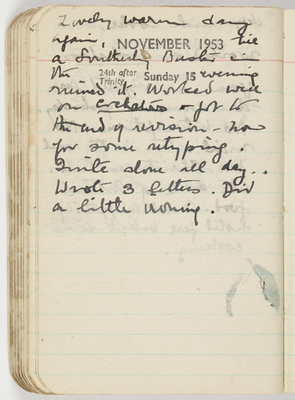 Lovely warm day
again, till
NOVEMBER 1953
a Southerly Buster in
the evening
24th after Trinity Sunday 15
ruined it. Worked well
on & got to
the end of revision - now
for some retyping.
Quite alone all day.
Wrote 3 letters. Did
a little ironing.